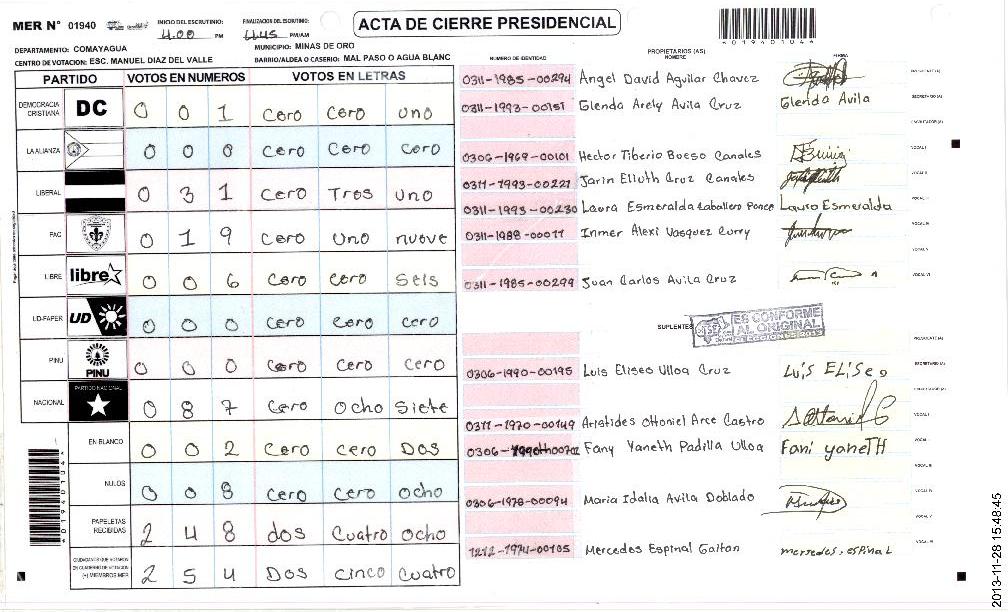 MER N° 01940
INICIO DEL ESCRUTINIO: 4:00 PM
FINALIZACION DEL ESCRUTINIO: PM/AM
ACTA DE CIERRE PRESIDENCIAL
4019401044
DEPARTAMENTO: COMAYAGUA
MUNICIPIO: MINAS DE ORO
CENTRO DE VOTACION: ESC. MANUEL DIAZ DEL VALLE
BARRIO/ALDEA O CASERIO: MAL PASO O AGUA BLANC
PARTIDO VOTOS EN NUMEROS VOTOS EN LETRAS
DEMOCRACIA CRISTIANA DC 0 0 1 Cero Cero uno
LA ALIANZA 0 0 0 Cero Cero Cero
LIBERAL 0 3 1 Cero Tres uno
PAC 0 1 9 Cero Uno nueve
LIBRE libre 0 0 6 Cero Cero Seis
UD-FAPER UD 0 0 0 Cero Cero Cero
PINU PINU 0 0 0 Cero Cero Cero
NACIONAL PARTIDO NACIONAL 0 8 7 Cero Ocho Siete
EN BLANCO 0 0 2 Cero Cero Dos
NULOS 0 0 8 Cero Cero Ocho
PAPELETAS RECIBIDAS 2 4 8 dos Cuatro Ocho
CIUDADANOS QUE VOTARON EN CUADERNO DE VOTACION (+) MIEMBROS MER 2 5 4 Dos cinco Cuatro
NUMERO DE IDENTIDAD
PROPIETARIOS (AS)
NOMBRE
FIRMA
0311-1985-00294 Angel David Aguilar Chavez
0311-1993-00151 Glenda Arely Avila Cruz Glenda Avila
0306-1969-00101 Hector Tiberio Bueso Canales
0311-1993-00221 Jarin Eliuth Cruz Canales
0311-1993-00230 Laura Esmeralda Caballero Ponce Laura Esmeralda
0311-1988-00011 Inmer Alexi Vasquez Curry
0311-1985-00299 Juan Carlos Avila Cruz
SUPLENTES
ES CONFORME
AL ORIGINAL
0306-1990-00195 Luis Eliseo Ulloa Cruz Luis Eliseo
0311-1970-00149 Aristides Othoniel Arce Castro
Fany Yaneth Padilla Ulloa Fani yaneTH
0306-1978-00094 Maria Idalia Avila Doblado
1212-1974-00105 Mercedes Espinal Gaitan mersedes, espinal
2013-11-28 15:48:45